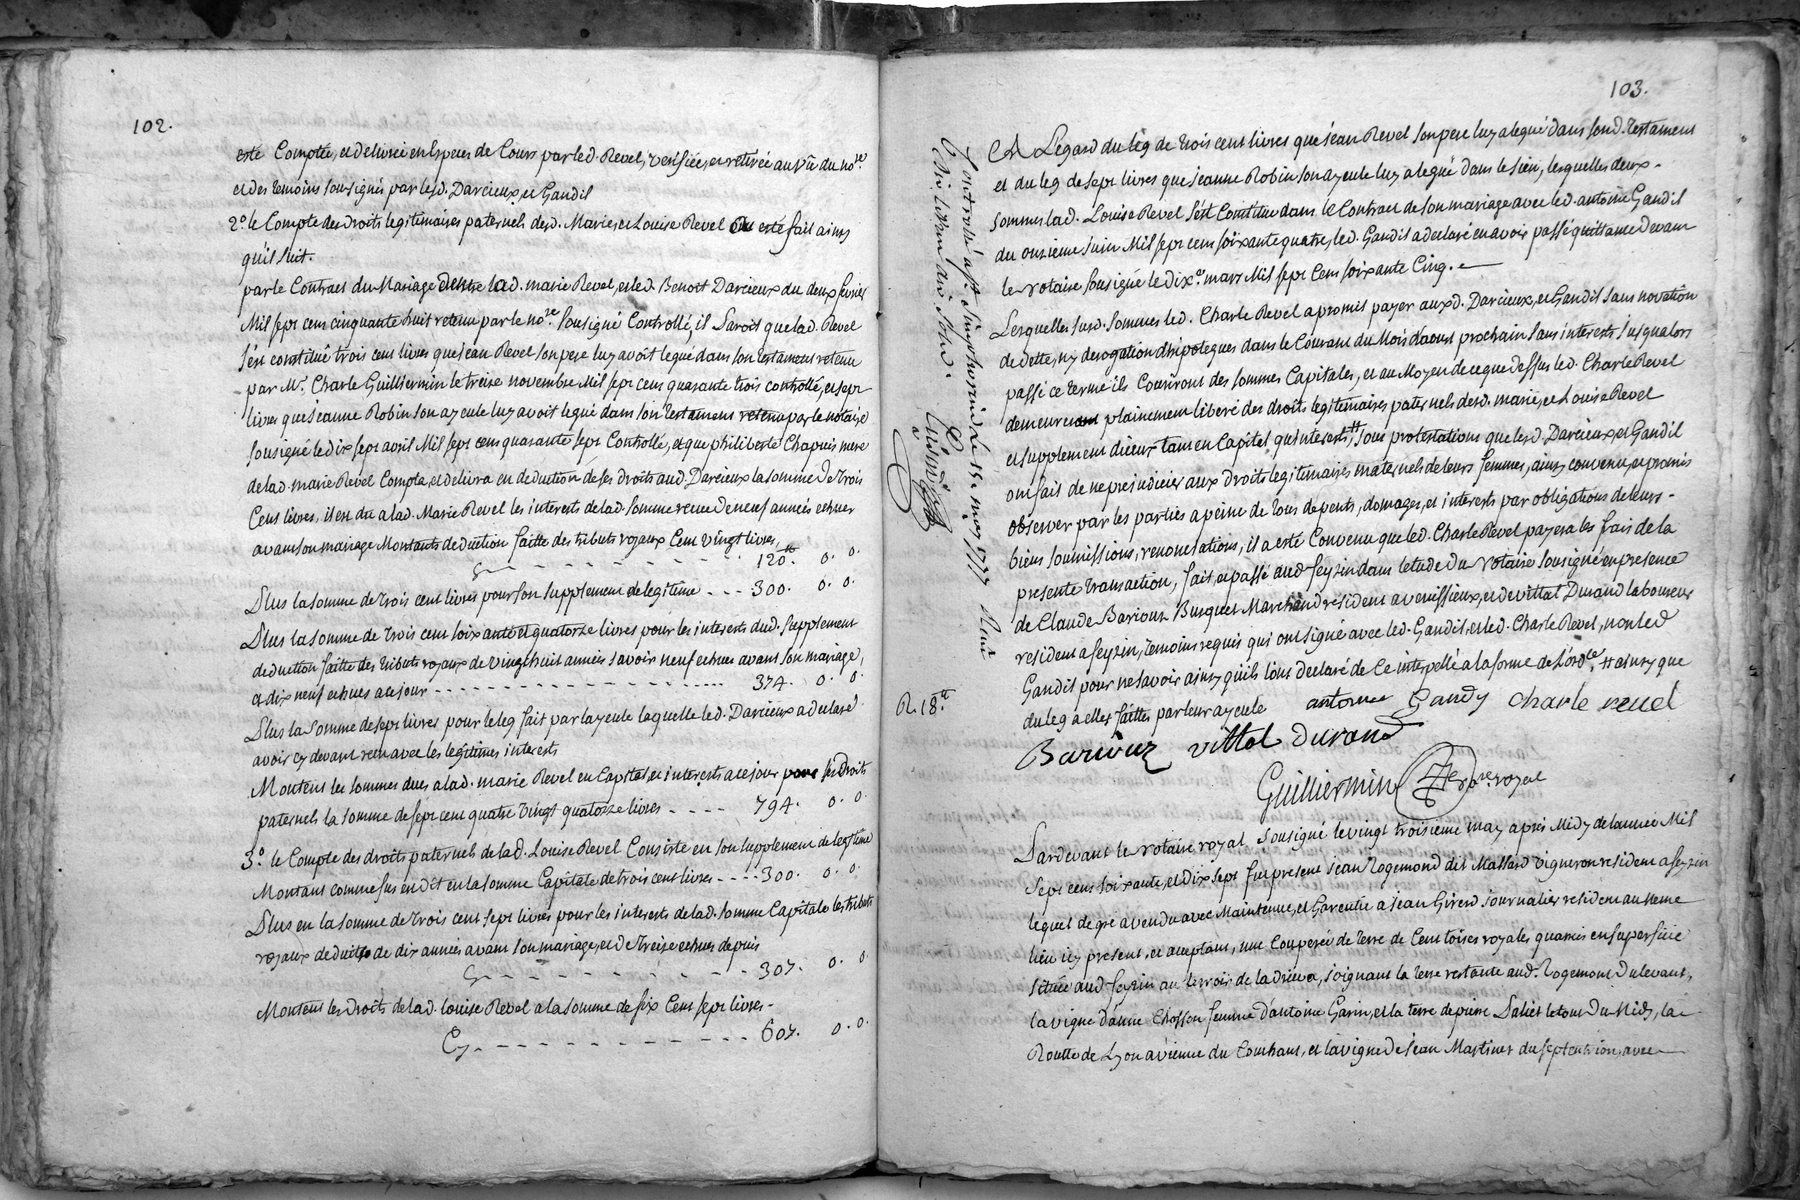 102.
esté Comptée, et delivrée en Especes de Cours par led. Revel, verifiée, et retirée au vû du no.re
et des temoins sousigné par lesd. Darcieux, et Gandil
2.o le Compte des Droits legitimaires paternels desd. Marie, et Louise Revel a esté fait ainsy
qu'il suit.
par le Contract du Mariage d'entre lad. marie Revel, et led. Benoit Darcieux du deux fevrier
Mil sept cent cinquante huit retenu par le no.re sousigné Controllé, il Paroit que lad. Revel
s'est constituê trois cent livres que jean Revel son pere luy avoit legué dans son testament retenu
par M.e Charle Guilliermin le treise novembre Mil sept cent quarante trois controllé, et sept
livres que jeanne Robin son ayeule luy avoit legué dans son testament retenu par le notaire
sousigné le dix sept avril Mil sept cens quarante sept Controllé, et que philiberte Chapuis mere
de lad. marie Revel Compta, et delivra en deduction de ses droits aud. Darcieux la somme de trois
Cent livres, il est du a lad. Marie Revel les interests de lad. somme de neuf années echues
avant son mariage Montants deduction faitte des tributs royaux Cent vingt livres,
Cy - - - - - - - - 120.tt 0. 0.
Plus la somme de trois cent livres pour son supplement de legitime - - - 300. 0. 0.
Plus la somme de trois cent soixante et quatorze livres pour les interests dud. supplement
deduction faitte des tributs royaux de vingt huit années savoir neuf echues avant son mariage,
et dix neuf echues a ce jour - - - - - - - - - - 374. 0. 0.
Plus la somme de sept livres pour le leg fait par layeule laquelle led. Darcieux a declaré
avoir cy devant recu avec les legitimes interests
Montent les sommes dues a lad. marie Revel en Capital, et interests a ce jour pour ses Droits
paternels la somme de sept cent quatre vingt quatorze livres - - - - 794. 0. 0.
3.o le Compte des droits paternels de lad. Louise Revel Consiste en son supplement de legitime
Montant comme sus est Dit en la somme Capitale de trois cent livres - - - - 300. 0. 0.
Plus en la somme de trois cent sept livres pour les interests de lad. somme Capitale les tributs
royaux deduits de dix années avant son mariage, et de treise echues depuis
Cy - - - - - - - - - 307. 0. 0.
Montent les Droits de lad. louise Revel a la somme de six Cent sept livres -
Cy - - - - - - - - - - - 607. 0. 0.
103.
A Legard du leg de trois cent livres que jean Revel son pere luy a legué dans sond. testament
et du leg de sept livres que jeanne Robin son ayeule luy a legué dans le sien, lesquelles deux
sommes lad. Louise Revel s'est Constituée dans le Contract de son mariage avec led. antoine Gandil
du onzieme juin Mil sept cent soixante quatre, led. Gandil a declaré en avoir passé quittance devant
le notaire sousigné le dix.e mars Mil sept Cent soixante Cinq.
Lesquelles susd. sommes led. Charle Revel a promit payer auxd. Darcieux, et Gandil sans novation
de dette, ny derogation d'hipoteques dans le Courant du Mois d'aoust prochain sans interests jusqu'alors
passé ce terme ils Couriront des sommes Capitales, et au Moyen de ce que dessus led. Charle Revel
demeure plainement liberé des droits legitimaires paternels desd. marie, et Louise Revel
et supplement d'iceux tant en Capital, qu'interests, # sous protestations que lesd. Darcieux, et Gandil
ont fait de ne prejudicier aux droits legitimaires maternels de leurs femmes, ainsy convenu, et promis
observer par les parties a peine de tous depents, domages, et interests par obligations de leurs -
biens soumissions, renonciations, il a esté Convenu que led. Charle Revel payera les frais de la
presente transaction, fait, et passé aud. feyzin dans l'etude du Notaire sousigné en presence
de Claude Barioux Burquet Marchand resident a venissieux, et de vittal Durand laboureur
resident a feyzin, temoins requis qui ont signé avec led. Gandil, et led. Charle Revel, non led
Gandil pour ne savoir ainsy qu'ils l'ont declaré de Ce interpellé a la forme de l'ord.ce, # ainsy que
du leg a elles faittes par leur ayeule antoine Gandy Charle revel
Barioux vittal Durand
Guilliermin no.re royal
Controllé a s.t simphorien Le 15 may 1777 Recu
Dix huit livres
R 18.tt
Pardevant le notaire royal sousigné le vingt troisieme may apres Midy de lannée Mil
sept cens soixante, et dix sept fut present jean Rogemond dit Massard vigneron resident a feyzin
lequel de gré a vendu avec Maintenue, et Garentie a jean Girerd journalier resident au meme
lieu icy present, et acceptant, une Couperée de terre de Cent toises royales quarrées en superficie
située aud. feyzin au terroir de la Drieva, joignant la terre restante aud. Rogemond du levant,
la vigne d'anne Chosson femme d'antoine Garin, et la terre de pierre Paliet le tout du Midy, la
Routte de Lyon a vienne du Couchant, et la vigne de jean Martinet du septentrion, avec